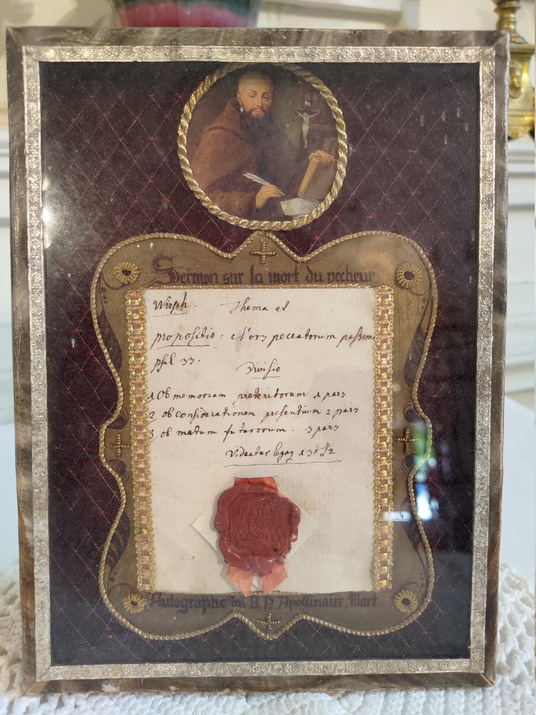 Sermon sur la mort du pécheur
Thema et
propositio: Mors peccatorum pessima
psal 33.
Divisio
1 Ob memoriam preteritorum 1 pars
2. ob considerationem presentium 2 pars
3. ob metum futurorum. 3 pars
Videatur
Autographe du B.P. Apollinaire, Mart.